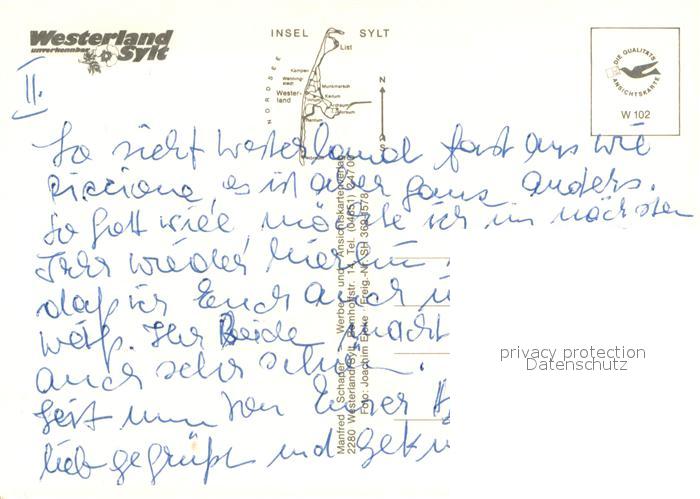 Westerland
unverkennbar Sylt
INSEL SYLT
List
Kampen
Wenning-
stedt
Munkmarsch
Wester-
land
Keitum
NORDSEE
N
S
DIE QUALITÄTS
ANSICHTSKARTE
W 102
II.
So sieht Westerland fast aus wie
Riccione, es ist aber ganz anders.
So Gott will, möchte ich im nächsten
Jahr wieder hierhin
daß ich Euch auch
weiß. Ihr Beide macht
auch sehr schön.
Seit nun von Eurer
lieb gegrüßt und
Manfred Schaper - Werbe- und Ansichtskartenverlag
2280 Westerland/Sylt, Bomhoffstr. 14, Tel. (04651) 24700
Foto: Joachim Eicke · Freig.-Nr. SH
privacy protection
Datenschutz